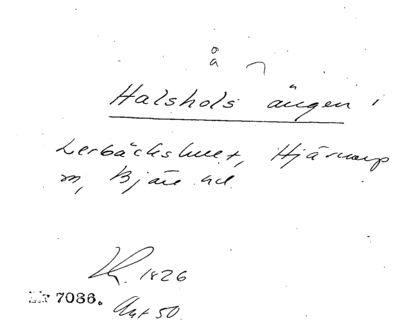 å
Halshols ängen i
Lerbäckshult, Hjärnarp
sn, Bjäre hd
1826
7086.
Akt 50.